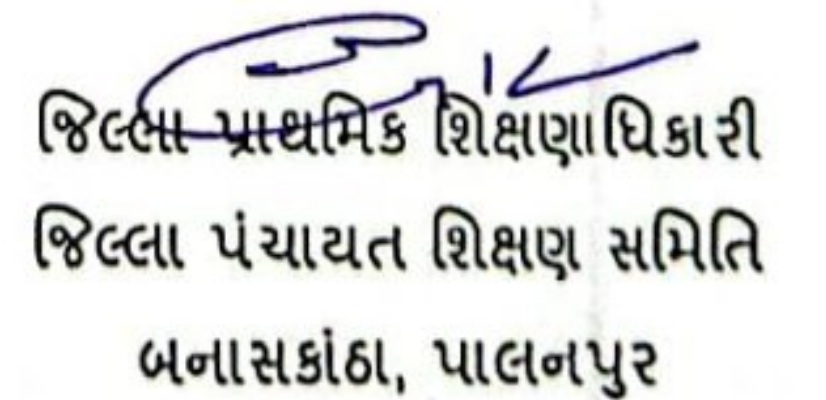 જિલ્લા પ્રાથમિક શિક્ષણાધિકારી
જિલ્લા પંચાયત શિક્ષણ સમિતિ
બનાસકાંઠા, પાલનપુર